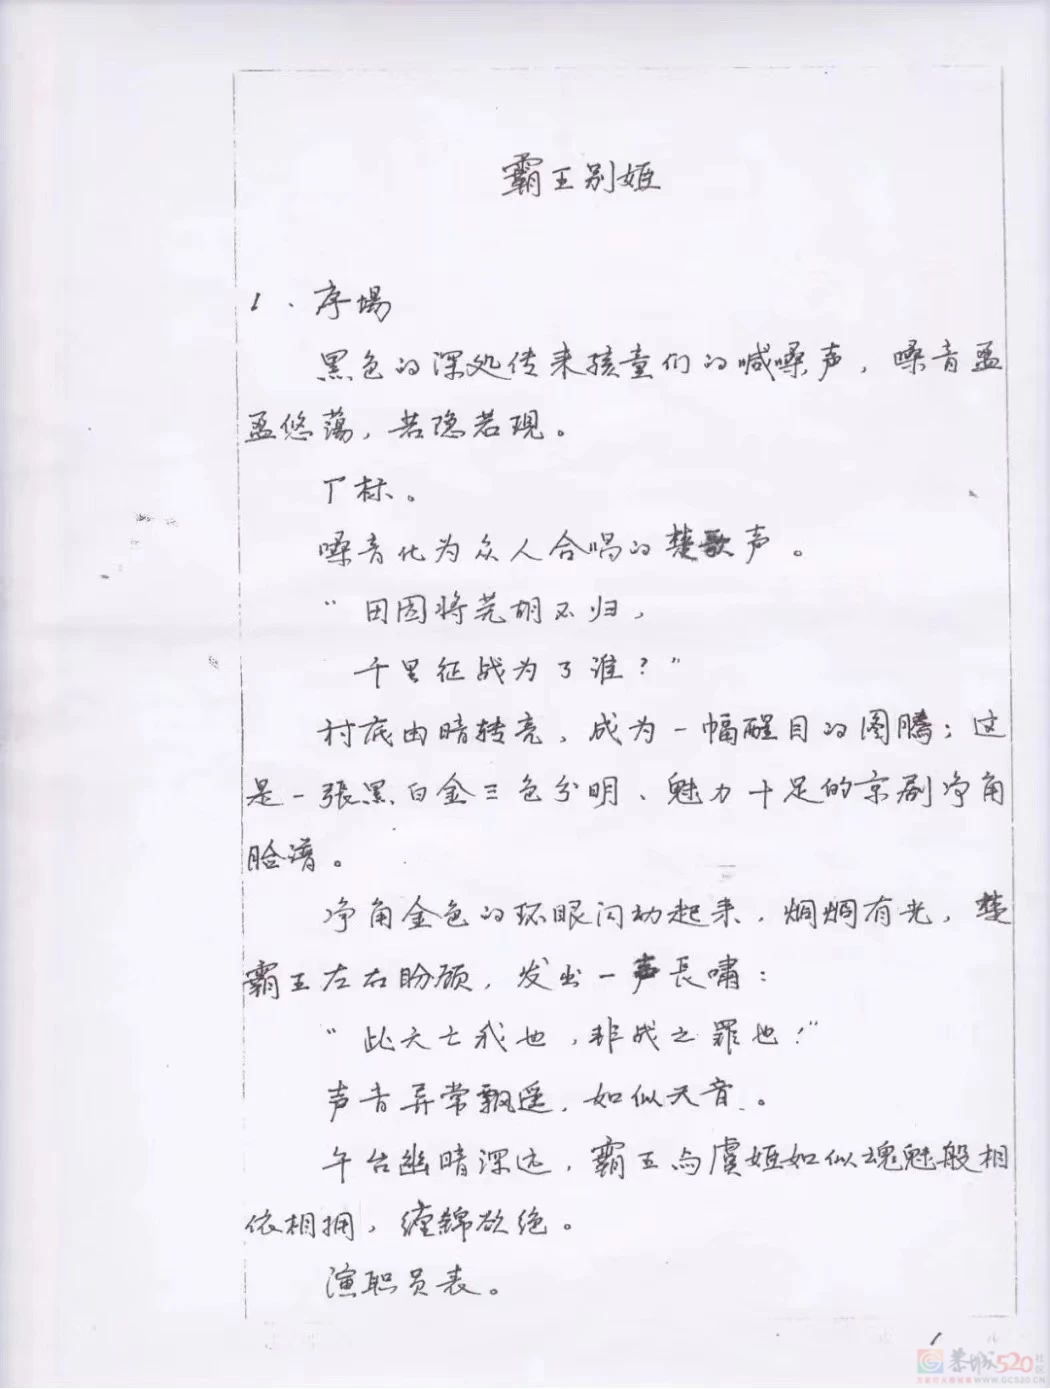 霸王别姬
1. 序場
黑色的深处传来孩童们的喊嗓声，嗓音孟
孟悠荡，若隐若现。
厂标。
嗓音化为众人合唱的楚歌声。
“田园将芜胡不归，
千里征战为了谁？”
衬底由暗转亮，成为一幅醒目的图腾；这
是一張黑白金三色分明、魅力十足的京剧净角
脸谱。
净角金色的环眼闪动起来，炯炯有光，楚
霸王左右盼顾，发出一声長嘯：
“此天亡我也，非战之罪也！”
声音异常飘遥，如似天音。
午台幽暗深远，霸王与虞姬如似魂魅般相
依相拥，缠錦欲绝。
演职员表。
1
恭城520社区
WWW.GC520.CN